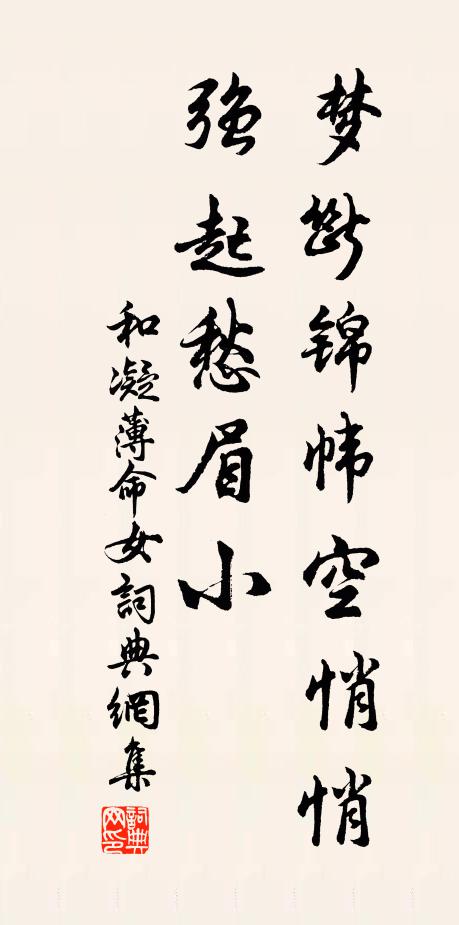 梦断锦帏空悄悄
强起愁眉小
和凝薄命女詞典網集
詞典网印